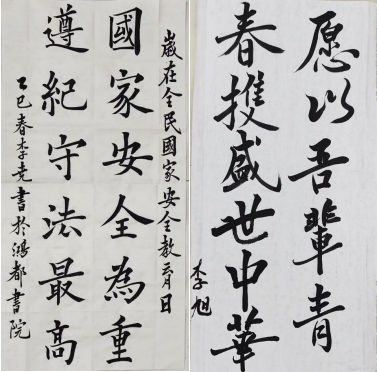 歲在全民國家安全教育日
國家安全為重
遵紀守法最高
乙巳春李尭書於鴻都書院
愿以吾輩青
春擭盛世中華
李旭